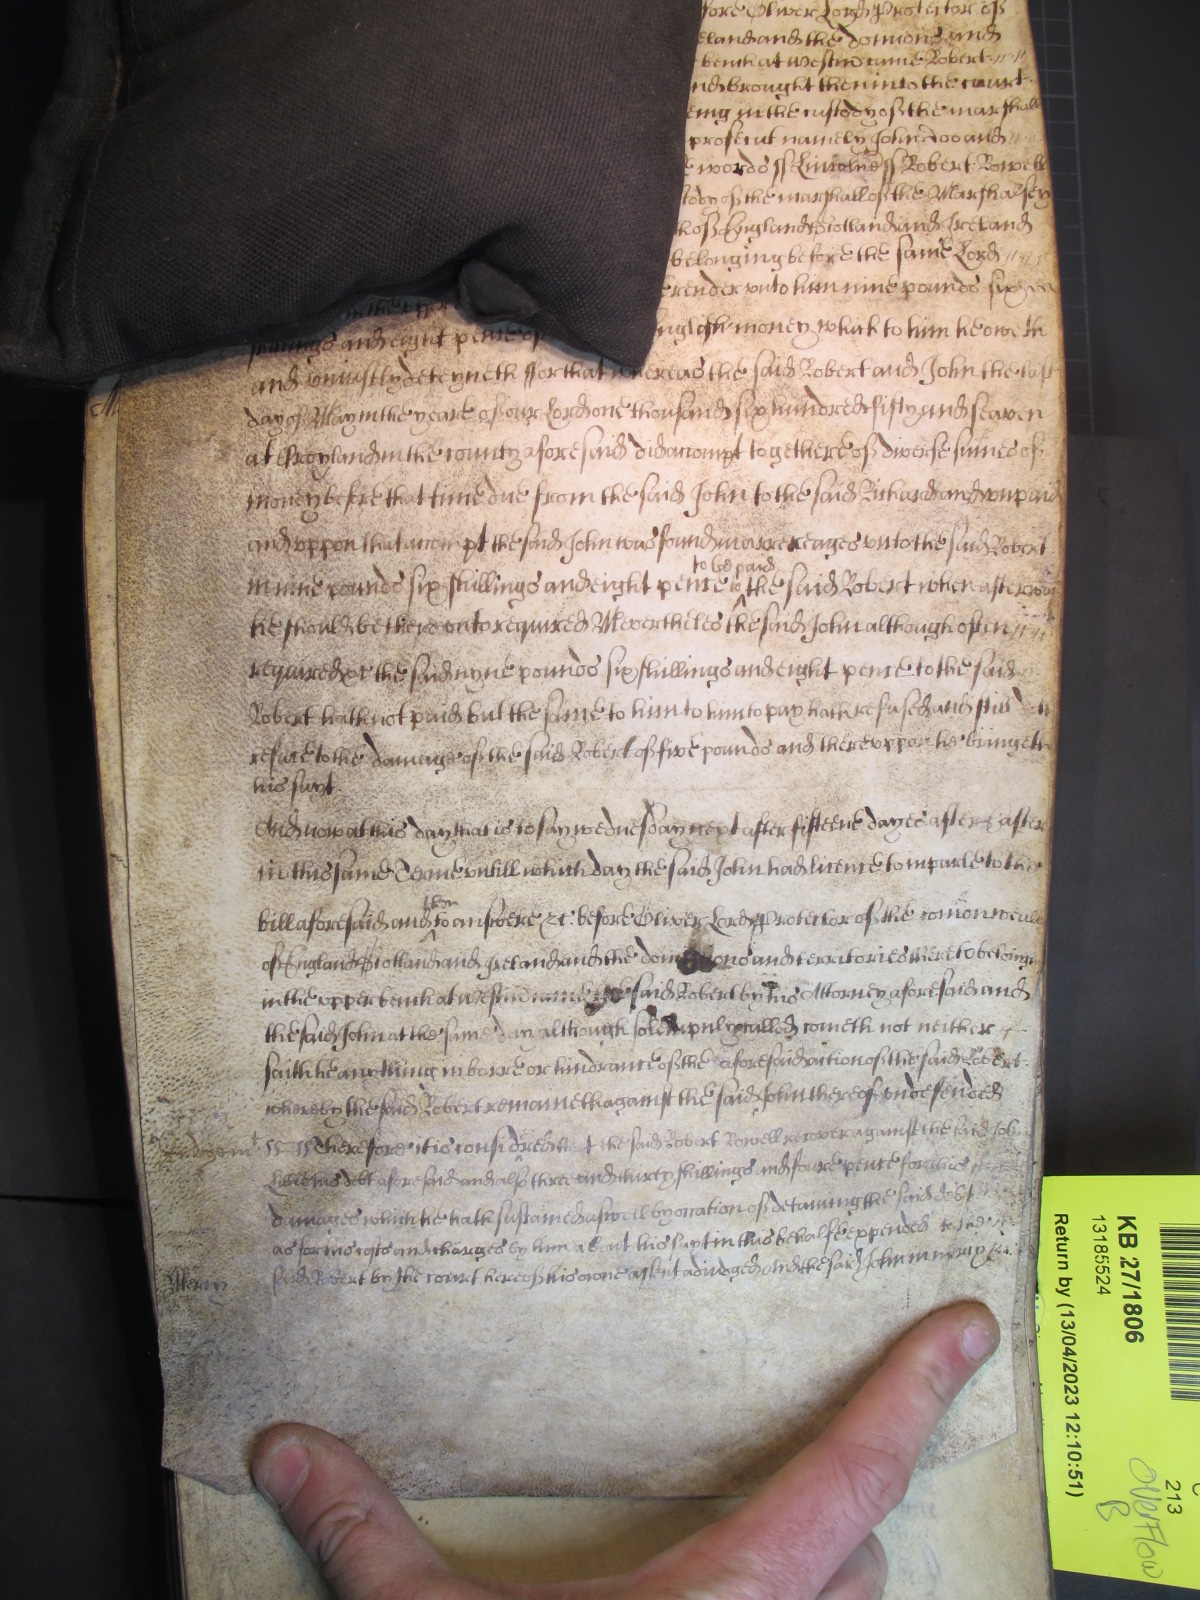 fore Oliver Lord Protector of
eland and the dominions and
bench at Westm came Robert
nd brought then into the court
eing in the custody of the marshall
prosecut namely John Doo and
words ss Lincolne ss Robert Rowell
tody of the marshall of the Marshalsey
h of England Scotland and Ireland
belonging before the same Lord
render unto him nine pounds six
in the upper
shillings and eight pence of nglish money which to him he oweth
and uniustly deteyneth ffor that whereas the said Robert and John the last
day of May in the yeare of our Lord one thousand six hundred fifty and seaven
at Croyland in the county aforesaid did accompt togethere of diverse sumes of
money before that time due from the said John to the said Richard and unpaid
and uppon that accompt the said John was found in arrereages unto the said Robert
to be paid
in nine pounds six shillings and eight pence to the said Robert when afterward
he should be thereunto required Nevertheles the said John although often
required &c the said nyne pounds six shillings and eight pence to the said
Robert hath not paid but the same to him to him to pay hath refused and still doth
refuse to the damage of the said Robert of five pounds and thereuppon he bringeth
his suyt
And now at this day that is to say wednesday next after fifteene dayes after Easter
in this same Terme untill which day the said John had licence to imparle to the
then
bill aforesaid and to answere &c before Oliver Lord Protector of the comonwealth
of England Scotland and Ireland and the dominions and territories thereto belonging
in the upper bench at Westm came the said Robert by his Attorney aforesaid and
the said John at the same day although solempnly called cometh not neither
saith he anything in barre or hindrance of the aforesaid action of the said Robert
whereby the said Robert remaineth against the said John thereof undefended
ss ss Therefore it is considred that the said Robert Rowell recover against the said John
his debt aforesaid and also three and thirty shillings and foure pence for his
damages which he hath sustained aswell by occation of detaining the said debt
as for his costs and charges by him about his suyt in this behalfe expended to the
said Robert by the court here of his owne assent adiudged And the said John in mercy &c
Mercy
KB 27/1806
13185524
Return by (13/04/2023 12:10:51)
213
Overflow
B